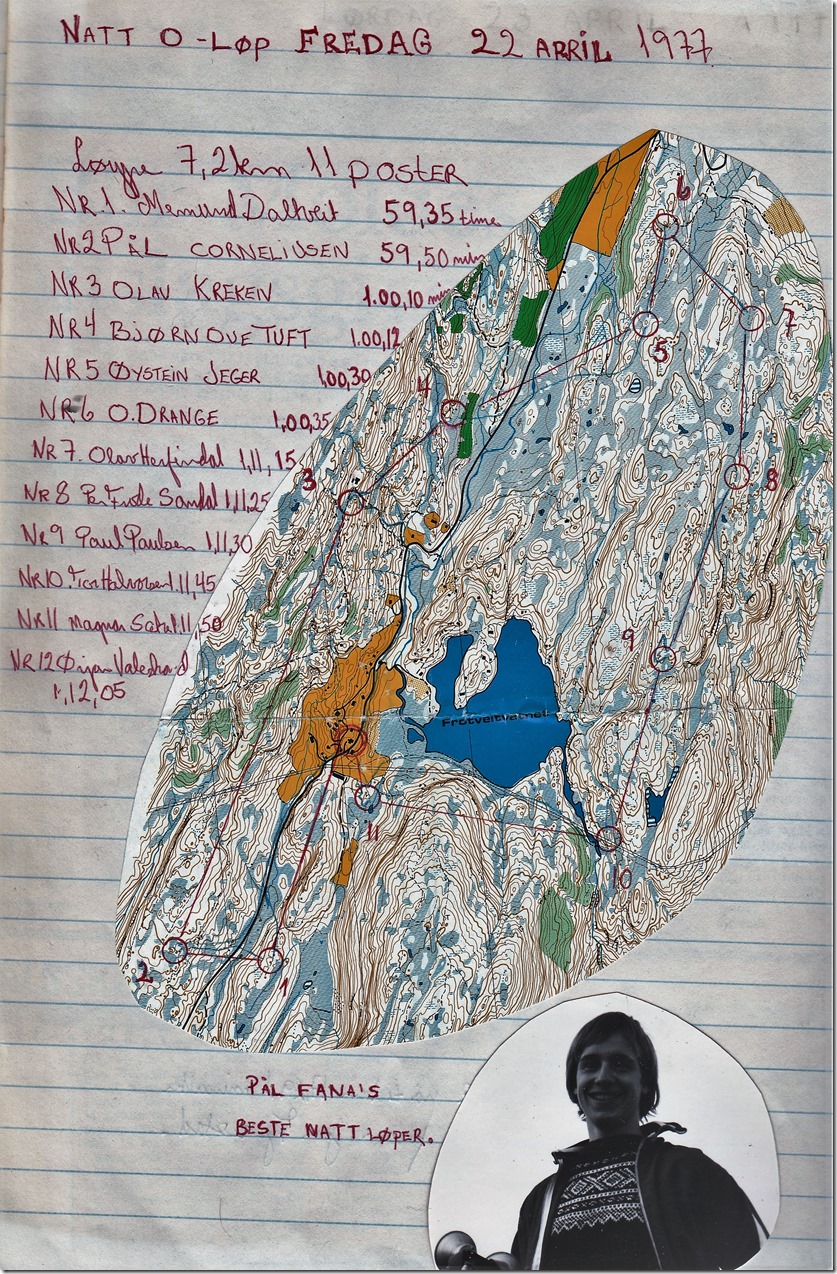 NATT O-LØP FREDAG 22 APRIL 1977
Løype 7,2km 11 POSTER
NR.1. Memund Daltveit 59,35 time
NR2 PÅL CORNELIUSEN 59,50 min
NR 3 OLAV KREKEN 1.00,10 min
NR 4 BJØRN OVE TUFT 1.00,12
NR 5 ØYSTEIN JEGER 1,00,30
NR 6 O. DRANGE 1,00,35
NR 7. Olav 1,11,15
NR 8 Per Frode Sandal 1,11,25
NR 9 Paul Paulsen 1,11,30
NR10. Tor Halvorsen 1.11,45
NR11 Magnus 1.11,50
NR12 Ørjan
1,12,05
6
7
5
4
3
8
9
Frotveitvatnet
11
10
2
1
PÅL FANA'S
BESTE NATTLØPER.